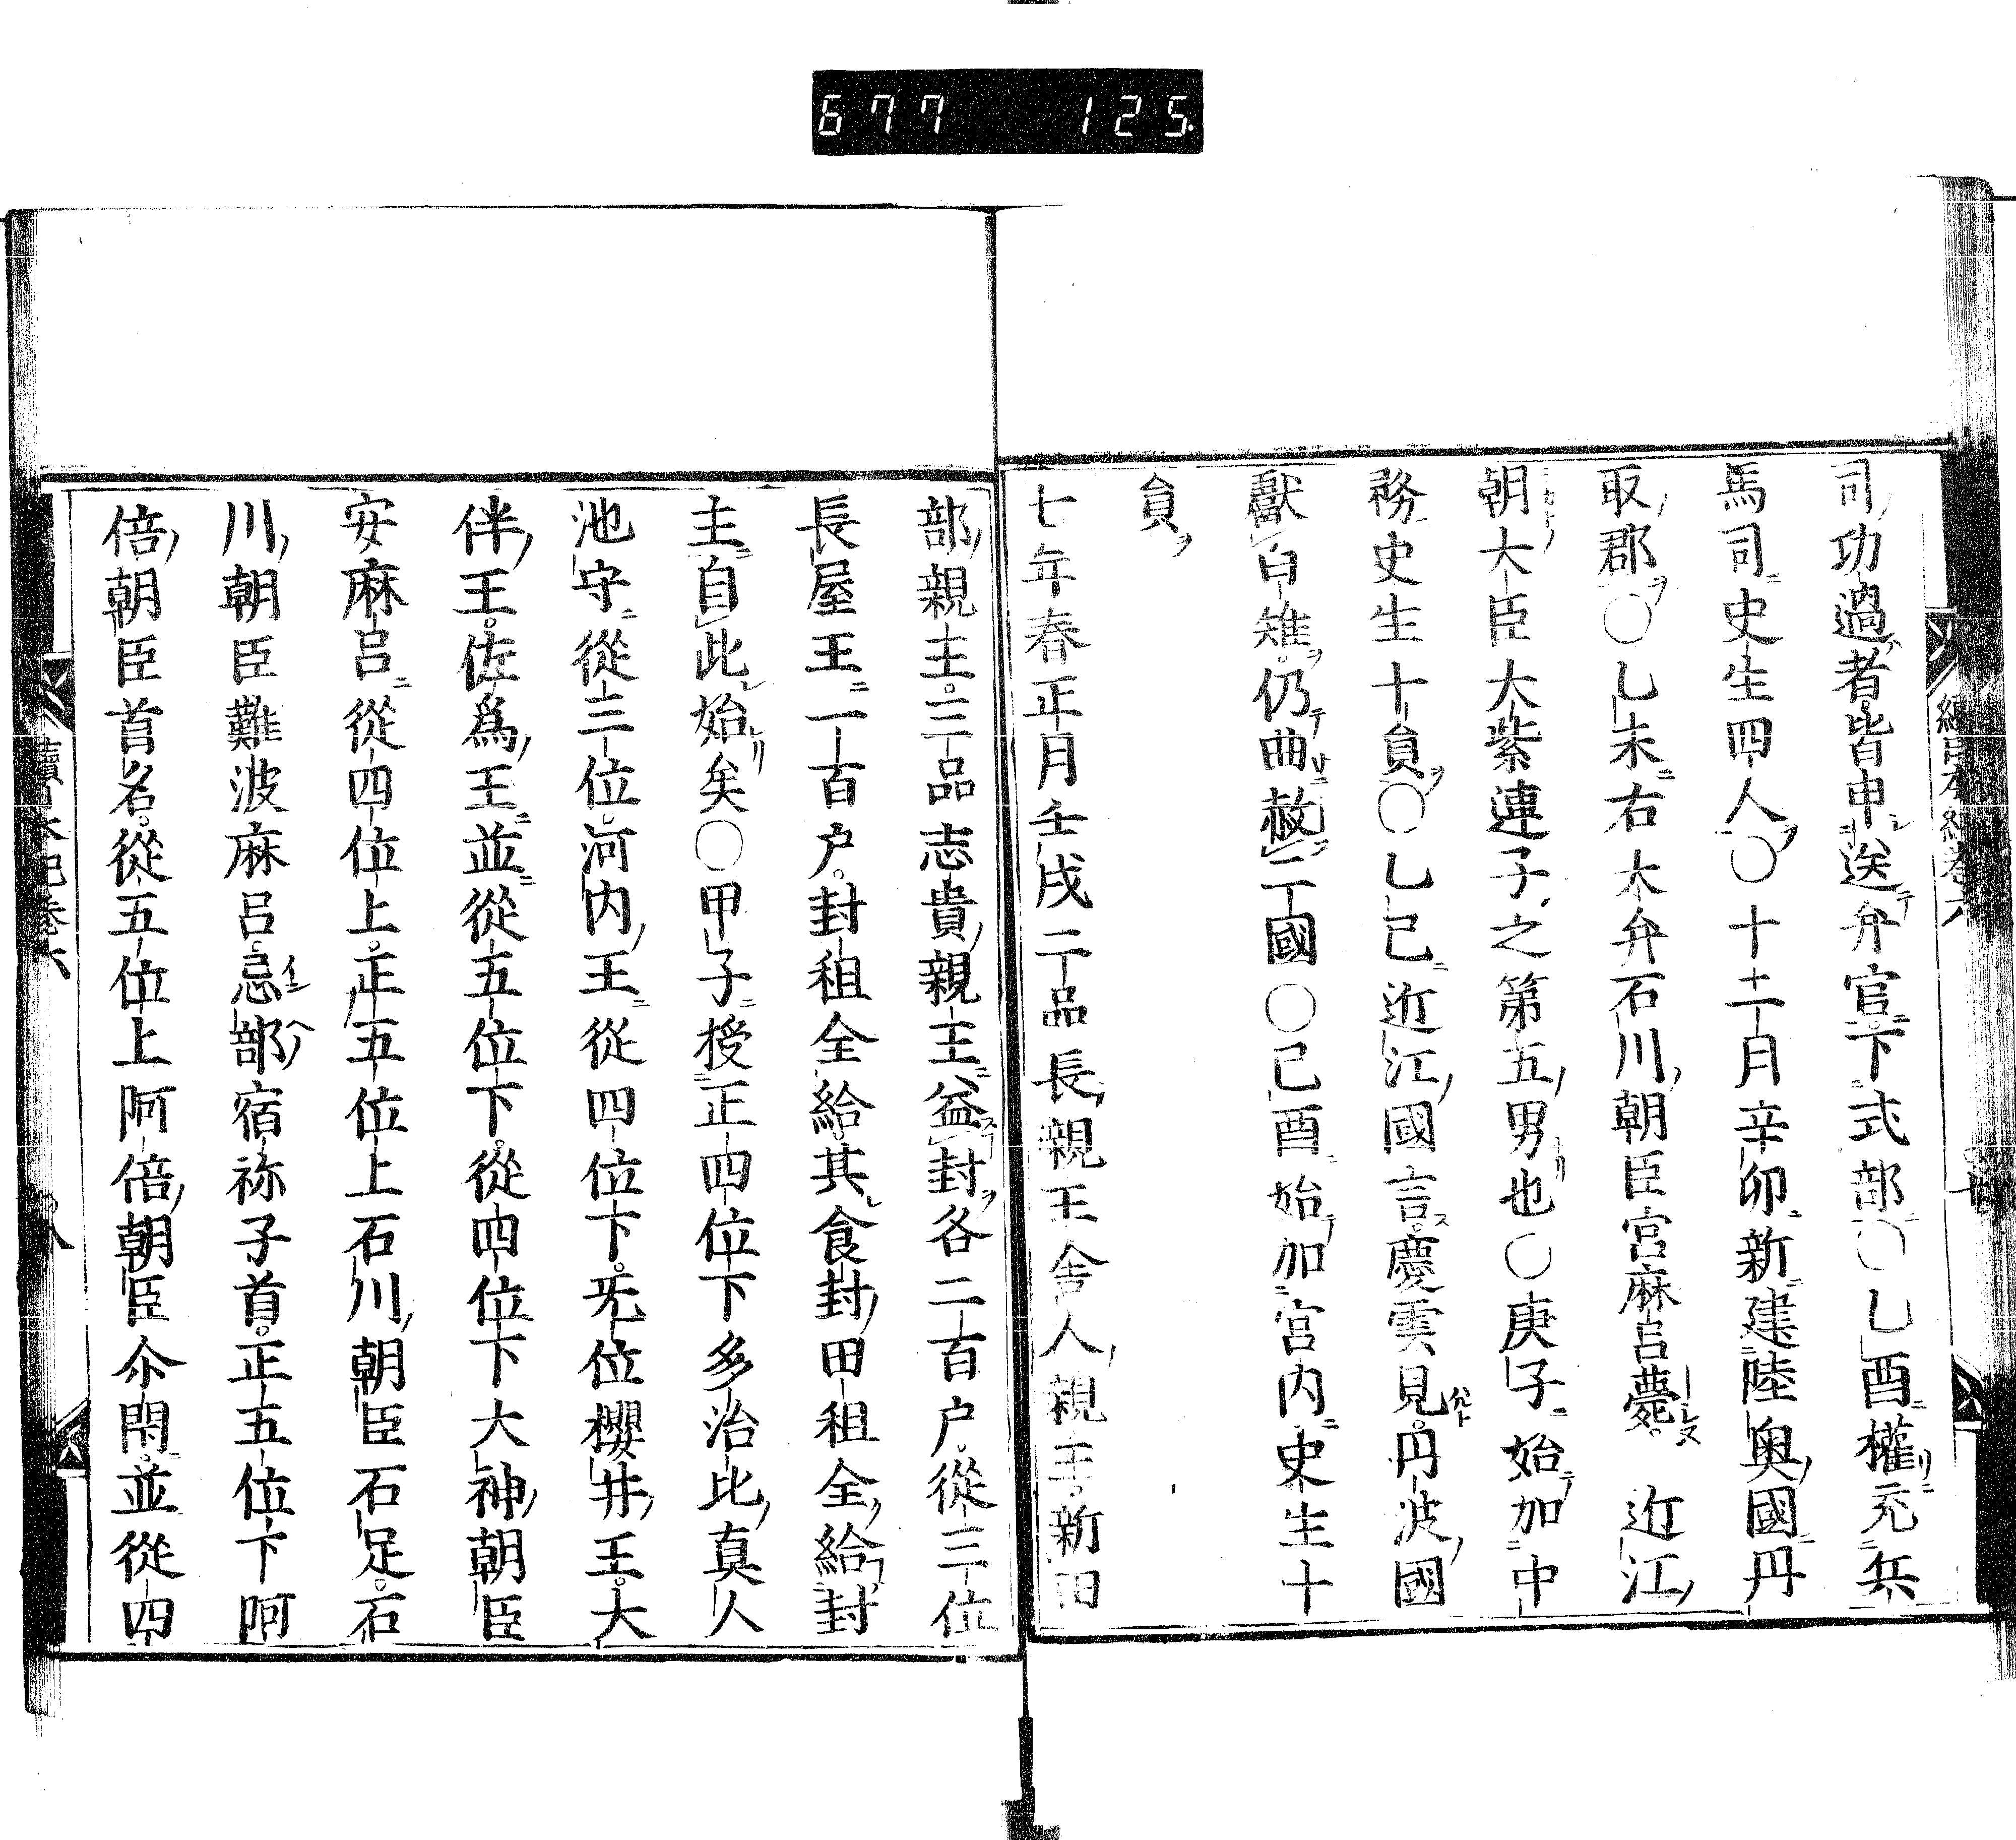 677 125.
司功過者皆申送弁官下式部〇乙酉權充兵
馬司史生四人〇十二月辛卯新建陸奥國丹
取郡〇乙未右大弁石川朝臣宮麻呂薨近江
朝大臣大紫連子之第五男也〇庚子始加中
務史生十員〇乙巳近江國言慶雲見丹波國
獻白雉仍曲赦二國〇己酉始加宮内史生十
員
七年春正月壬戌二品長親王舎人親王新田
部親王三品志貴親王益封各二百户從三位
長屋王一百户封租全給其食封田租全給封
主自此始矣〇甲子授正四位下多治比真人
池守從三位河内王從四位下旡位櫻井王大
伴王佐爲王並從五位下從四位下大神朝臣
安麻呂從四位上正五位上石川朝臣石足石
川朝臣難波麻呂忌部宿祢子首正五位下阿
倍朝臣首名從五位上阿倍朝臣尒閇並從四
續日本紀卷六
八